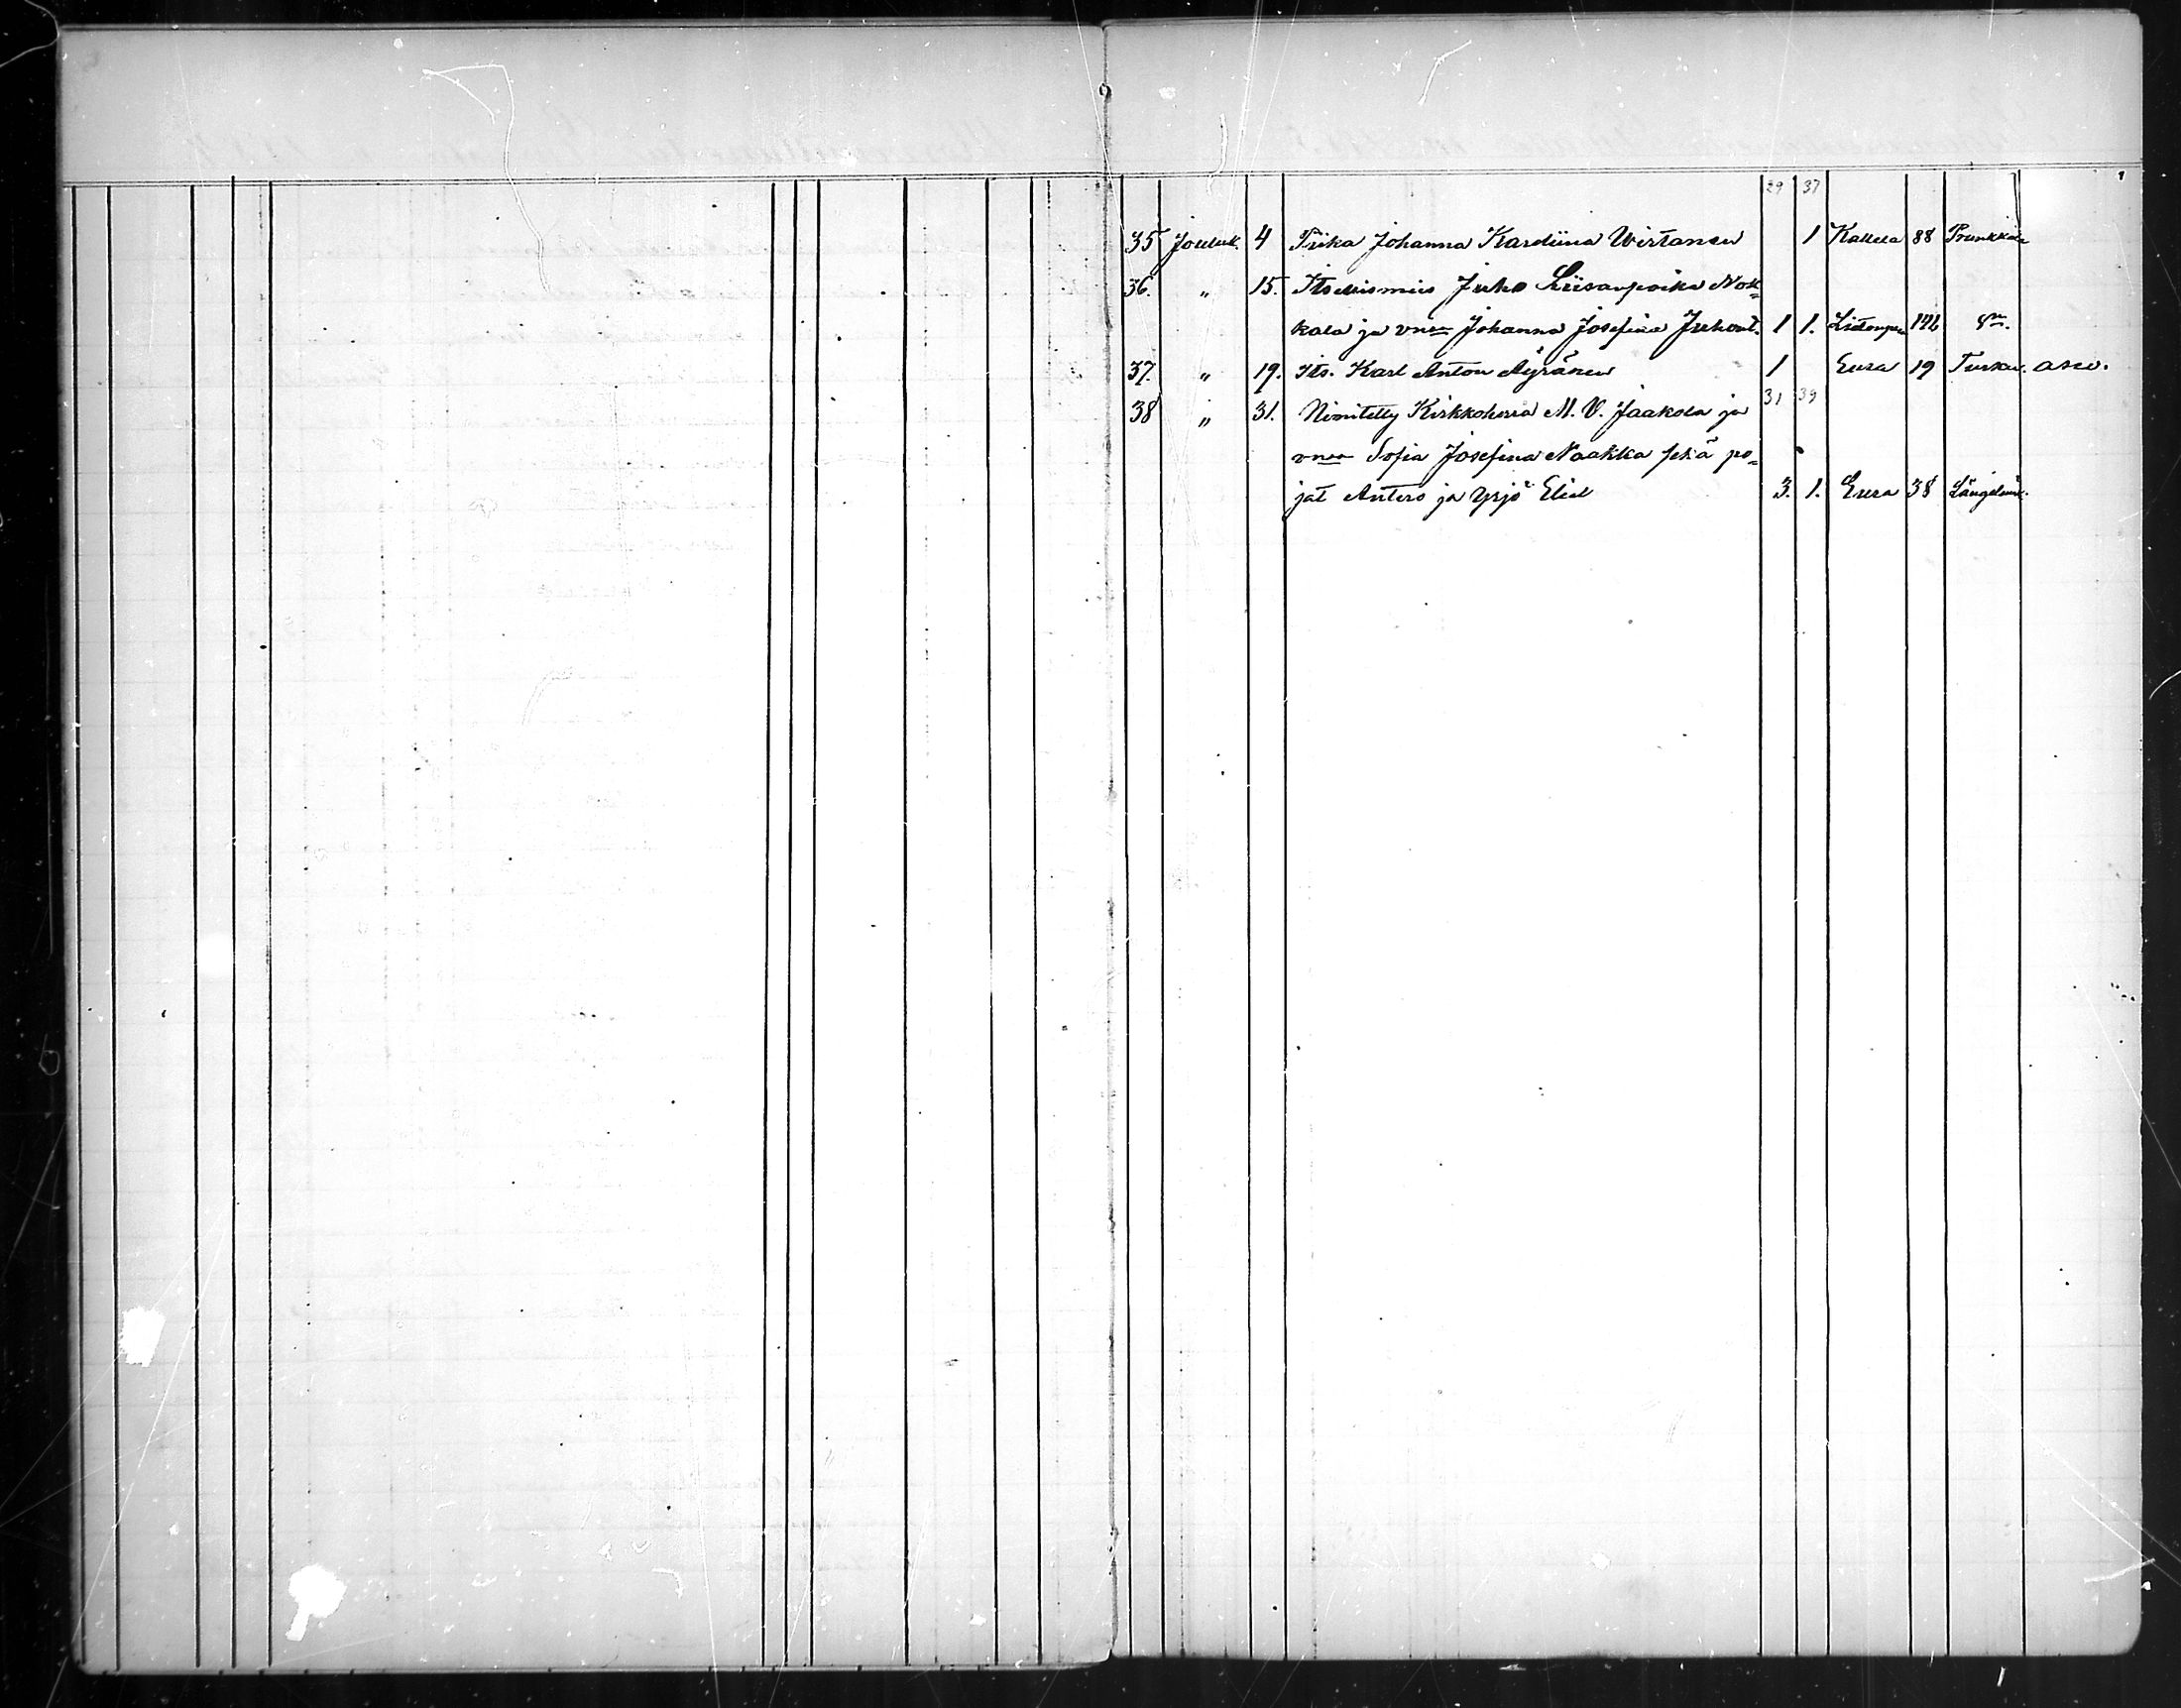 29 37
35 Jouluk. 4 Piika Johanna Karoliina Wirtanen 1 Kallela 88 Prunkkala
36. " 15. Itsellismies Juho Liisanpoika Nok-
kala ja vmo Johanna Josefina Juhont. 1 1. 146
37. " 19. Its. Karl Anton Äyränen 1 Eura 19 Turku. asev.
38 " 31. Nimitetty Kirkkoherra M. V. Jaakola ja 31 39
vmo Sofia Josefina Naakka sekä po-
jat Antero ja Yrjö Eliel 3. 1. Eura 38 Längelmk.